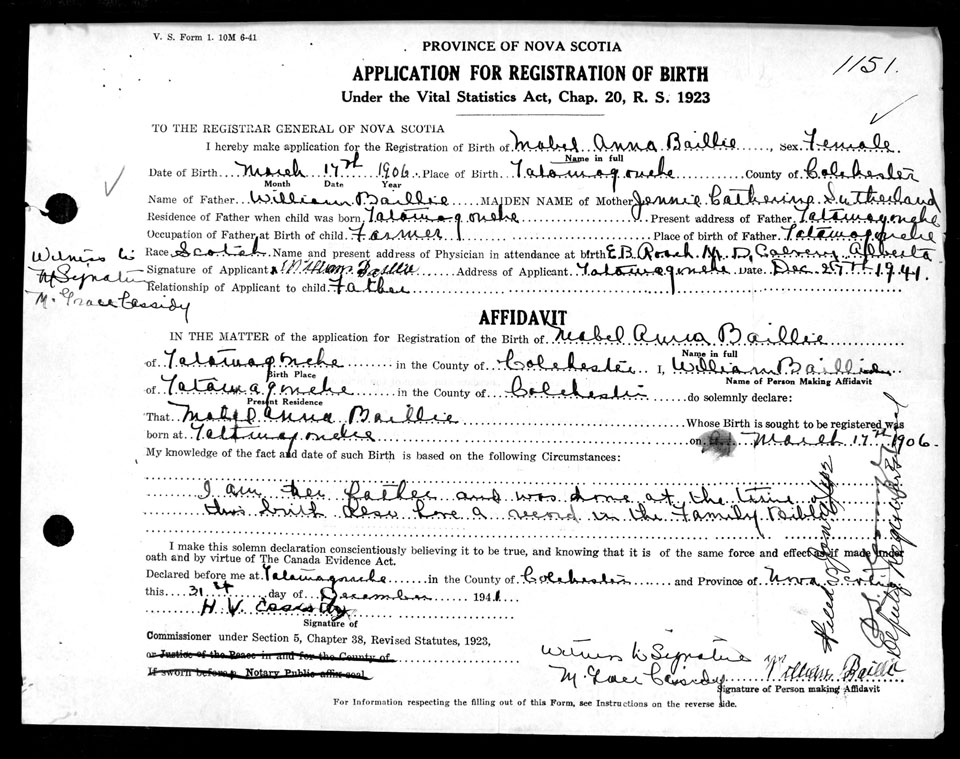 V. S. Form 1. 10M 6-41
PROVINCE OF NOVA SCOTIA
1151.
APPLICATION FOR REGISTRATION OF BIRTH
Under the Vital Statistics Act, Chap. 20, R. S. 1923
TO THE REGISTRAR GENERAL OF NOVA SCOTIA
I hereby make application for the Registration of Birth of Mabel Anna Baillie, sex Female
Name in full
Date of Birth March 17th 1906 Place of Birth Tatamagouche County of Colchester
Month Date Year
Name of Father William Baillie MAIDEN NAME of Mother Jennie Catherine Sutherland
Residence of Father when child was born Tatamagouche Present address of Father Tatamagouche
Occupation of Father at Birth of child Farmer Place of birth of Father Tatamagouche
Race Scotch Name and present address of Physician in attendance at birth E.B. Roach M.D. Calgary Alberta
Signature of Applicant William Baillie Address of Applicant Tatamagouche Date Dec 27th 1941.
Relationship of Applicant to child Father
Witness to
Signature
M. Grace Cassidy
AFFIDAVIT
IN THE MATTER of the application for Registration of the Birth of Mabel Anna Baillie
Name in full
of Tatamagouche in the County of Colchester I, William Baillie
Birth Place Name of Person Making Affidavit
of Tatamagouche in the County of Colchester do solemnly declare:
Present Residence
That Mabel Anna Baillie Whose Birth is sought to be registered was
born at Tatamagouche on March 17th 1906.
My knowledge of the fact and date of such Birth is based on the following Circumstances:
I am her father and was home at the time of
this birth also have a record in the Family Bible
I make this solemn declaration conscientiously believing it to be true, and knowing that it is of the same force and effect as if made under
oath and by virtue of The Canada Evidence Act.
Declared before me at Tatamagouche in the County of Colchester and Province of Nova Scotia
this 31st day of December 1941
H V Cassidy
Signature of
Commissioner under Section 5, Chapter 38, Revised Statutes, 1923,
or Justice of the Peace in and for the County of
If sworn before a Notary Public affix seal
Witness to Signature
M. Grace Cassidy
William Baillie
Signature of Person making Affidavit
For Information respecting the filling out of this Form, see Instructions on the reverse side.
Deputy Registrar General